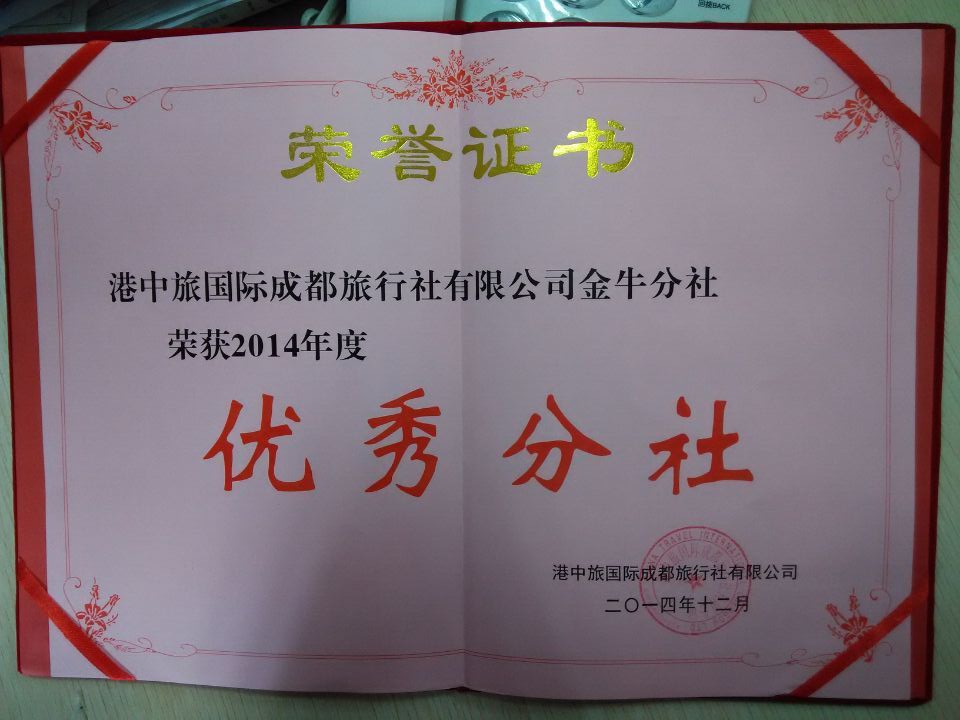 回拨BACK
荣誉证书
港中旅国际成都旅行社有限公司金牛分社
荣获2014年度
优秀分社
港中旅国际成都旅行社有限公司
二〇一四年十二月
TRAVEL INTERNATI